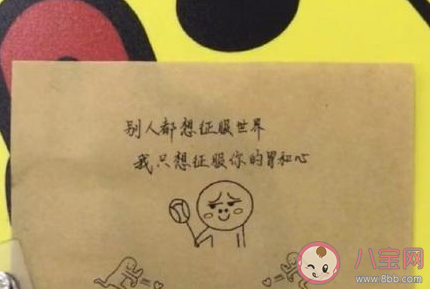 别人都想征服世界
我只想征服你的胃和心
八宝网
www.8bb.com